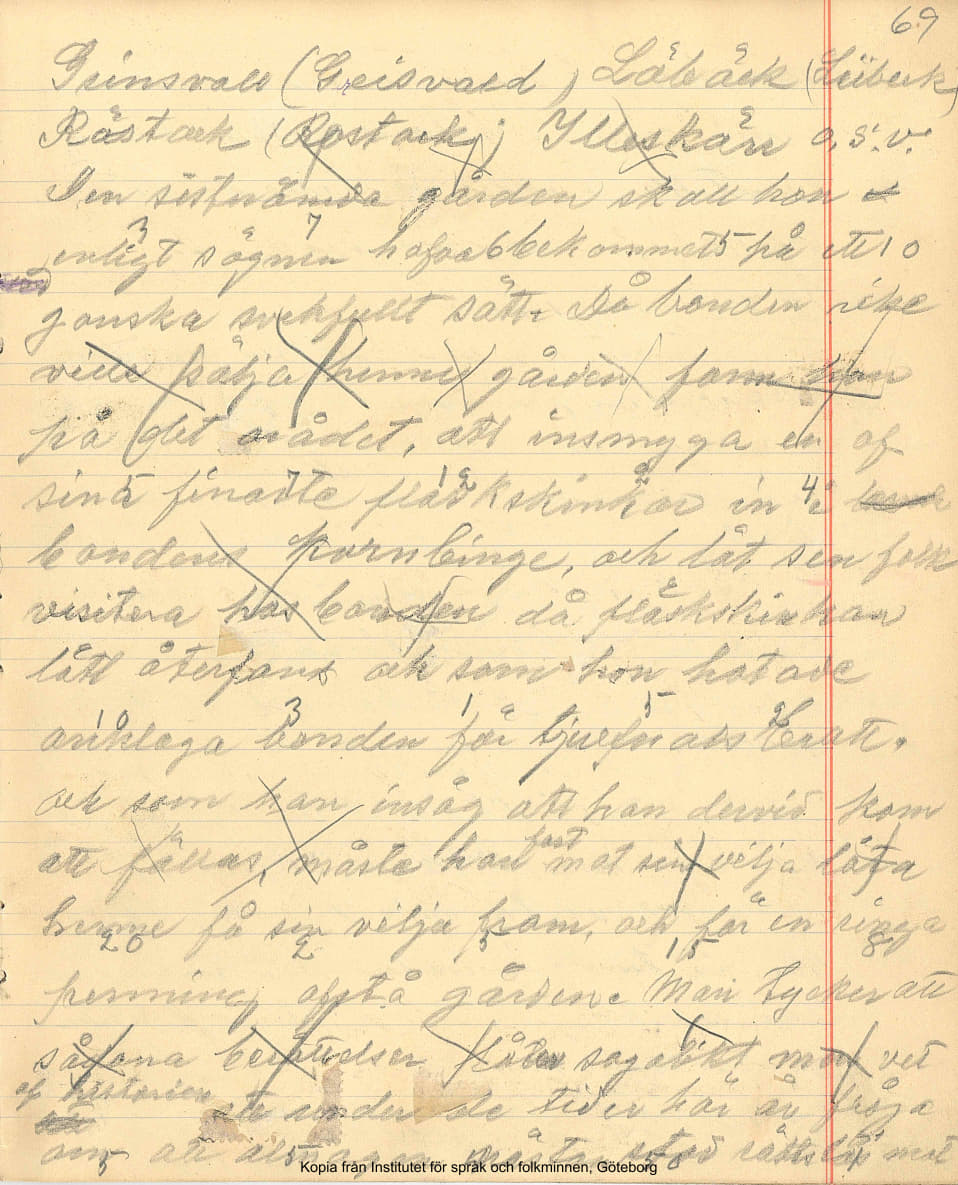 69
Grinsvald (Greisvald) Läbäck (Lübeck)
Råstack (Rostock) Ylleskärr o.s.v.
Den sistnämda gården skall hon
enligt sägnen hafva bekommet på ett
ganska svekfullt sätt. Då bonden icke
ville sälja henne gården fann hon
på det rådet, att insmyga en af
sina finaste fläskskinkor in i
bondens kornbinge, och låt sen folk
visitera hos bonden då fläskskinkan
lätt återfans och som hon hotade
anklaga bonden för tjufnadsbrott.
och som han insåg att han dervid kom
att fällas, måste han fast mot sin vilja låta
henne få sin vilja fram, och för en ringa
penning afstå gården. Man tycker att
sådana berättelser låter sagolikt man vet
af historien att under de tider här är fråga
om att almagen nästan stod rättslös mot
3 7 6 5 10
5 7 12 2 4
10 3 1 5 2
20 2 5 15 80
5 5
Kopia från Institutet för språk och folkminnen, Göteborg